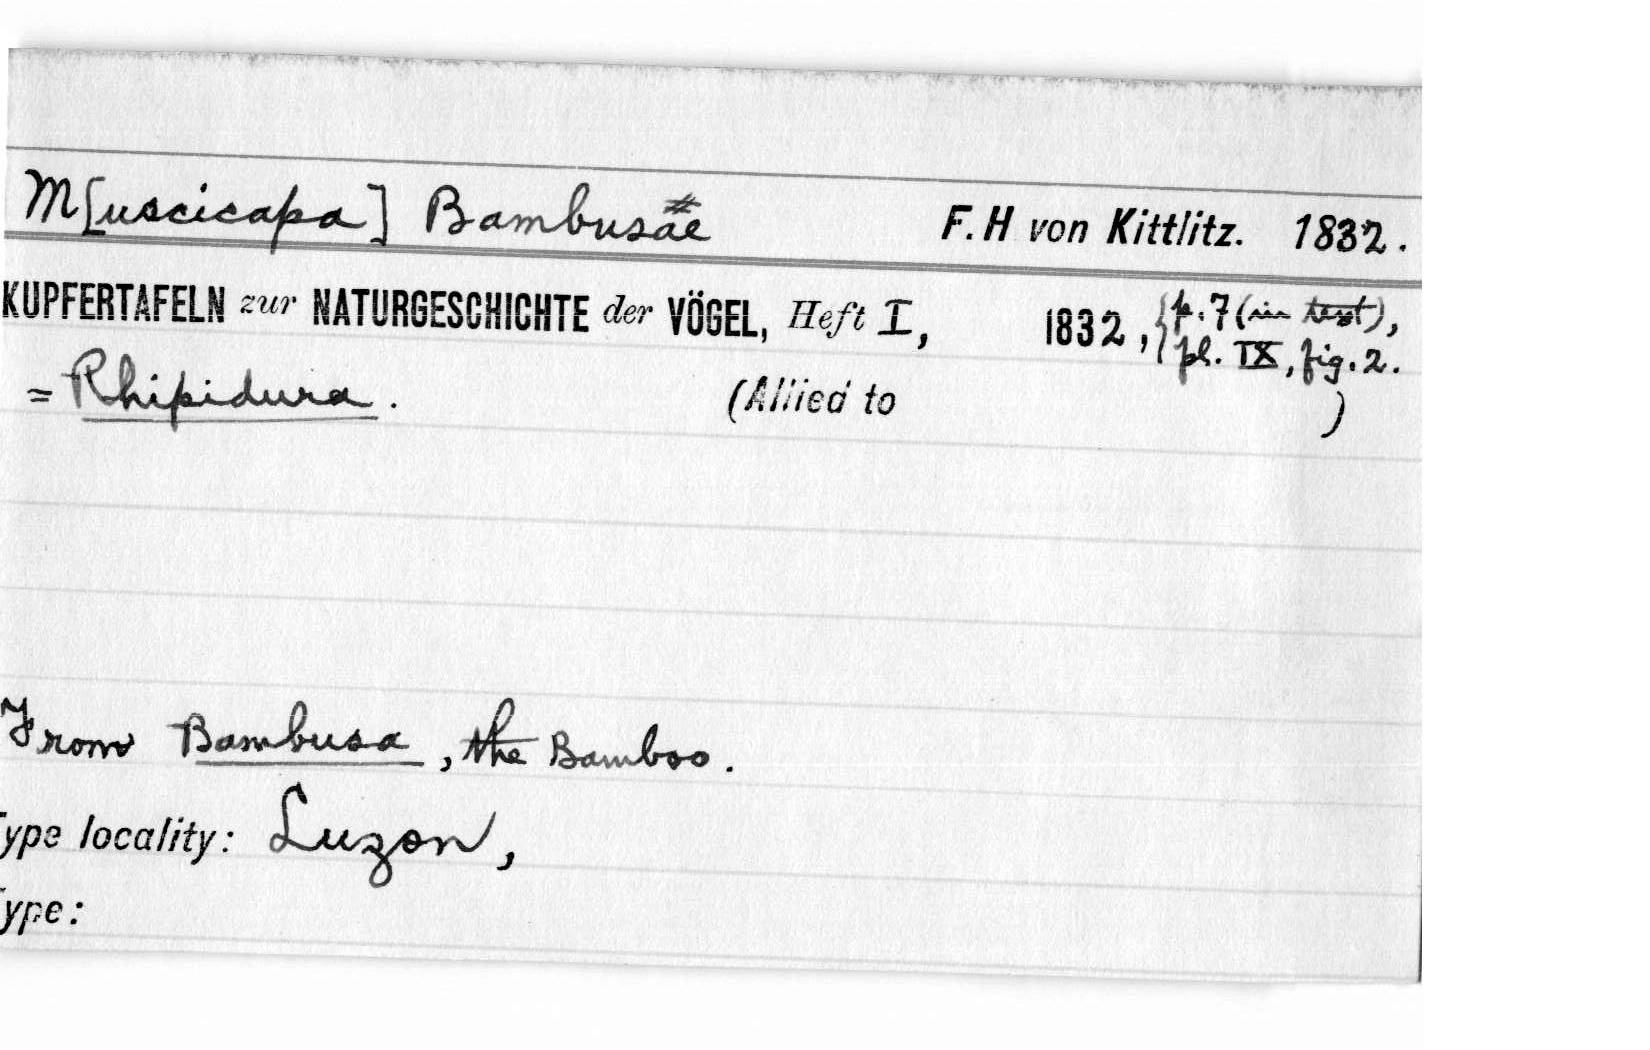 M[uscicapa] Bambusae# F.H von Kittlitz. 1832.
KUPFERTAFELN zur NATURGESCHICHTE der VÖGEL, Heft I, 1832, {p. 7 (in text),
pl. IX, fig. 2.
= Rhipidura. (Allied to )
From Bambusa, the Bamboo.
ype locality: Luzon,
ype: